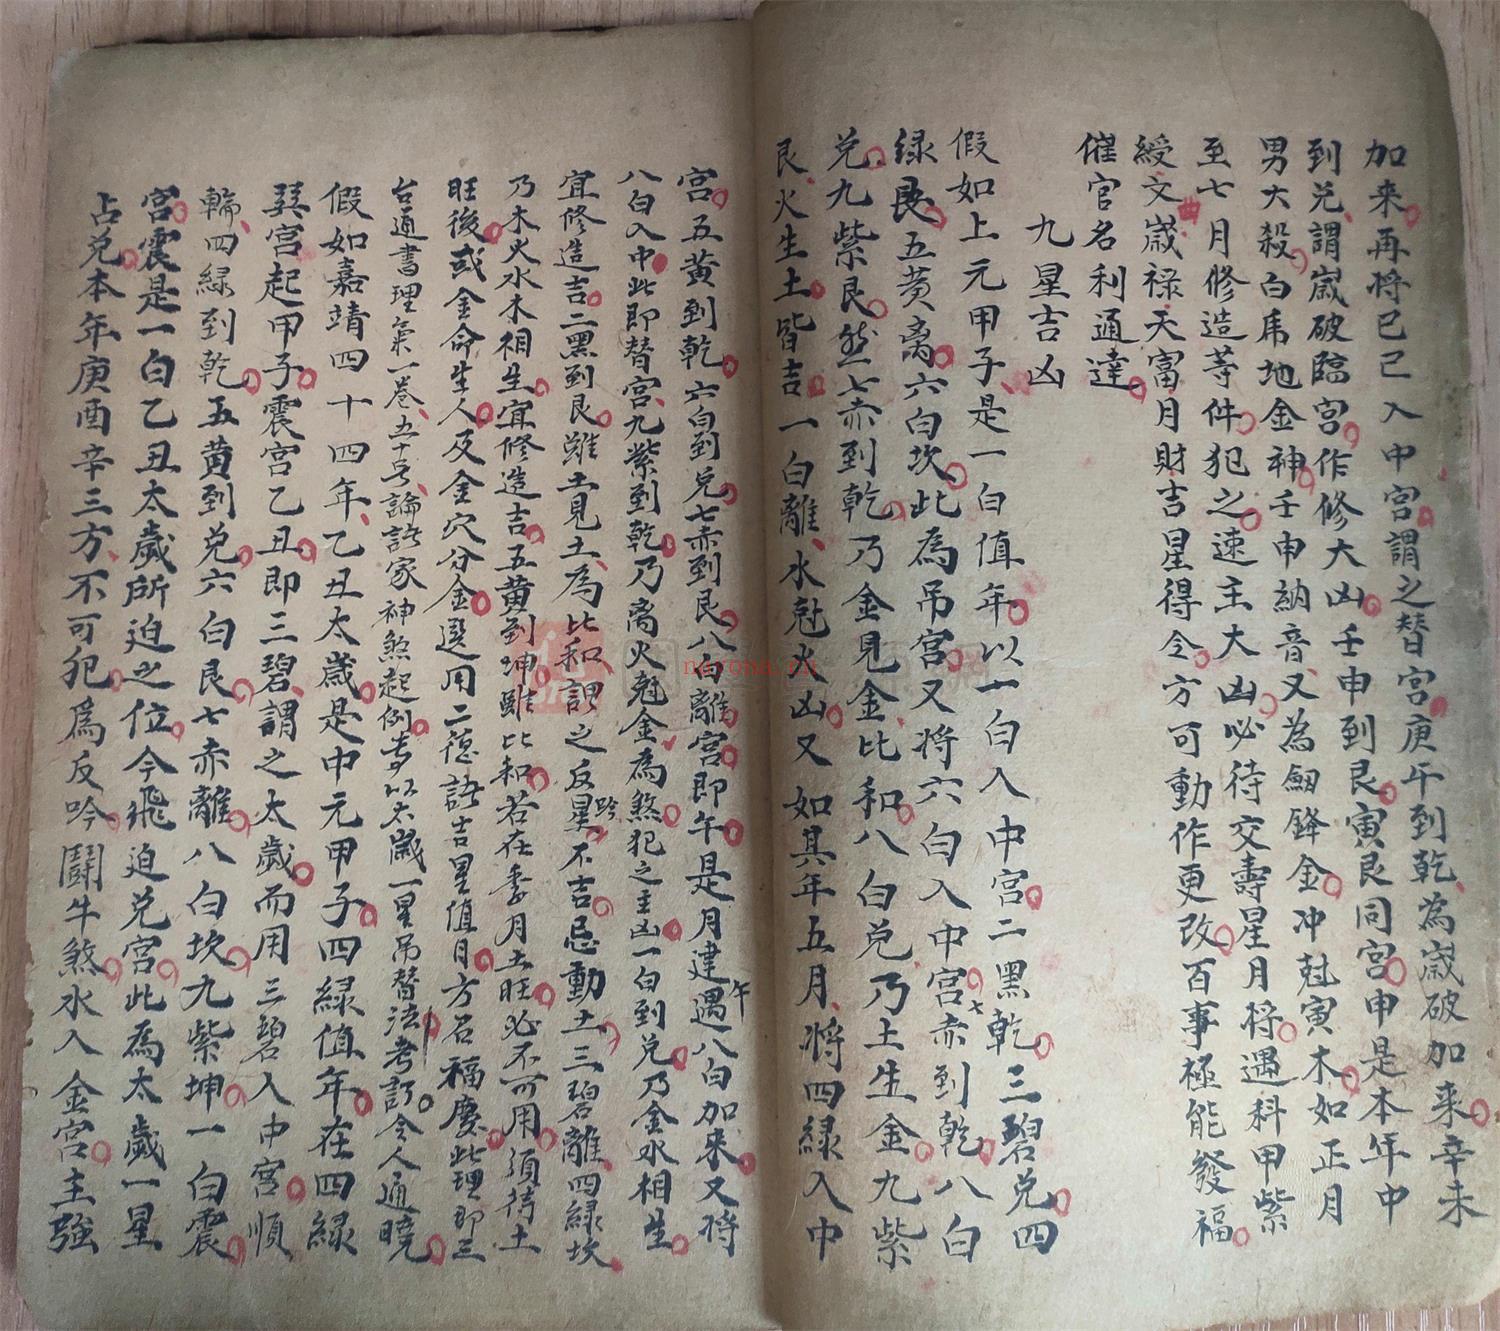 加来再将巳己入中宮謂之替宮庚午到乾為歲破加来辛未
到兑謂歲破臨宮作修大凶壬申到艮寅艮同宮申是本年中
男大殺白虎地金神壬申納音又為劔鋒金冲尅寅木如正月
至七月修造等件犯之速主大凶必待交壽星月将遇科甲紫
綬文曲歲禄天富月財吉星得令方可動作更改百事極能發福
催官名利通達
九星吉凶
假如上元甲子是一白值年以一白入中宮二黑乾三碧兑四
緑艮五黄离六白坎此為吊宮又将六白入中宮七赤到乾八白
兑九紫艮然七赤到乾乃金見金比和八白兑乃土生金九紫
艮火生土皆吉一白離水尅火凶又如其年五月将四緑入中
宮五黄到乾六白到兑七赤到艮八白離宮即午是月建遇午八白加来又将
八白入中此即替宮九紫到乾乃离火尅金為煞犯之主凶一白到兑乃金水相生
宜修造吉二黑到艮雖土見土為比和謂之反星吟不吉忌動土三碧離四緑坎
乃木火水木相生宜修造吉五黄到坤雖比和若在季月土旺必不可用須待土
旺後或金命生人及金穴分金選用二德諸吉星值月方召福慶此理即三
台通書理氣一卷五十号論諸家神煞起例専以太歲一星吊替法考訂令人通曉
假如嘉靖四十四年乙丑太歲是中元甲子四緑值年在四緑
巽宮起甲子震宮乙丑即三碧謂之太歲而用三碧入中宮順
輪四緑到乾五黄到兑六白艮七赤離八白坎九紫坤一白震
宮震是一白乙丑太歲所迫之位今飛迫兑宮此為太歲一星
占兑本年庚酉辛三方不可犯為反吟鬪牛煞水入金宮主強